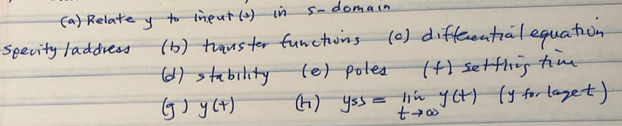 (a) Relate y to input(s) in s-domain
Specify/address (b) transfer functions (c) differential equation
(d) stability (e) poles (f) settling time
(g) y(t) (h) yss = lim y(t) (y for large t)
t→∞